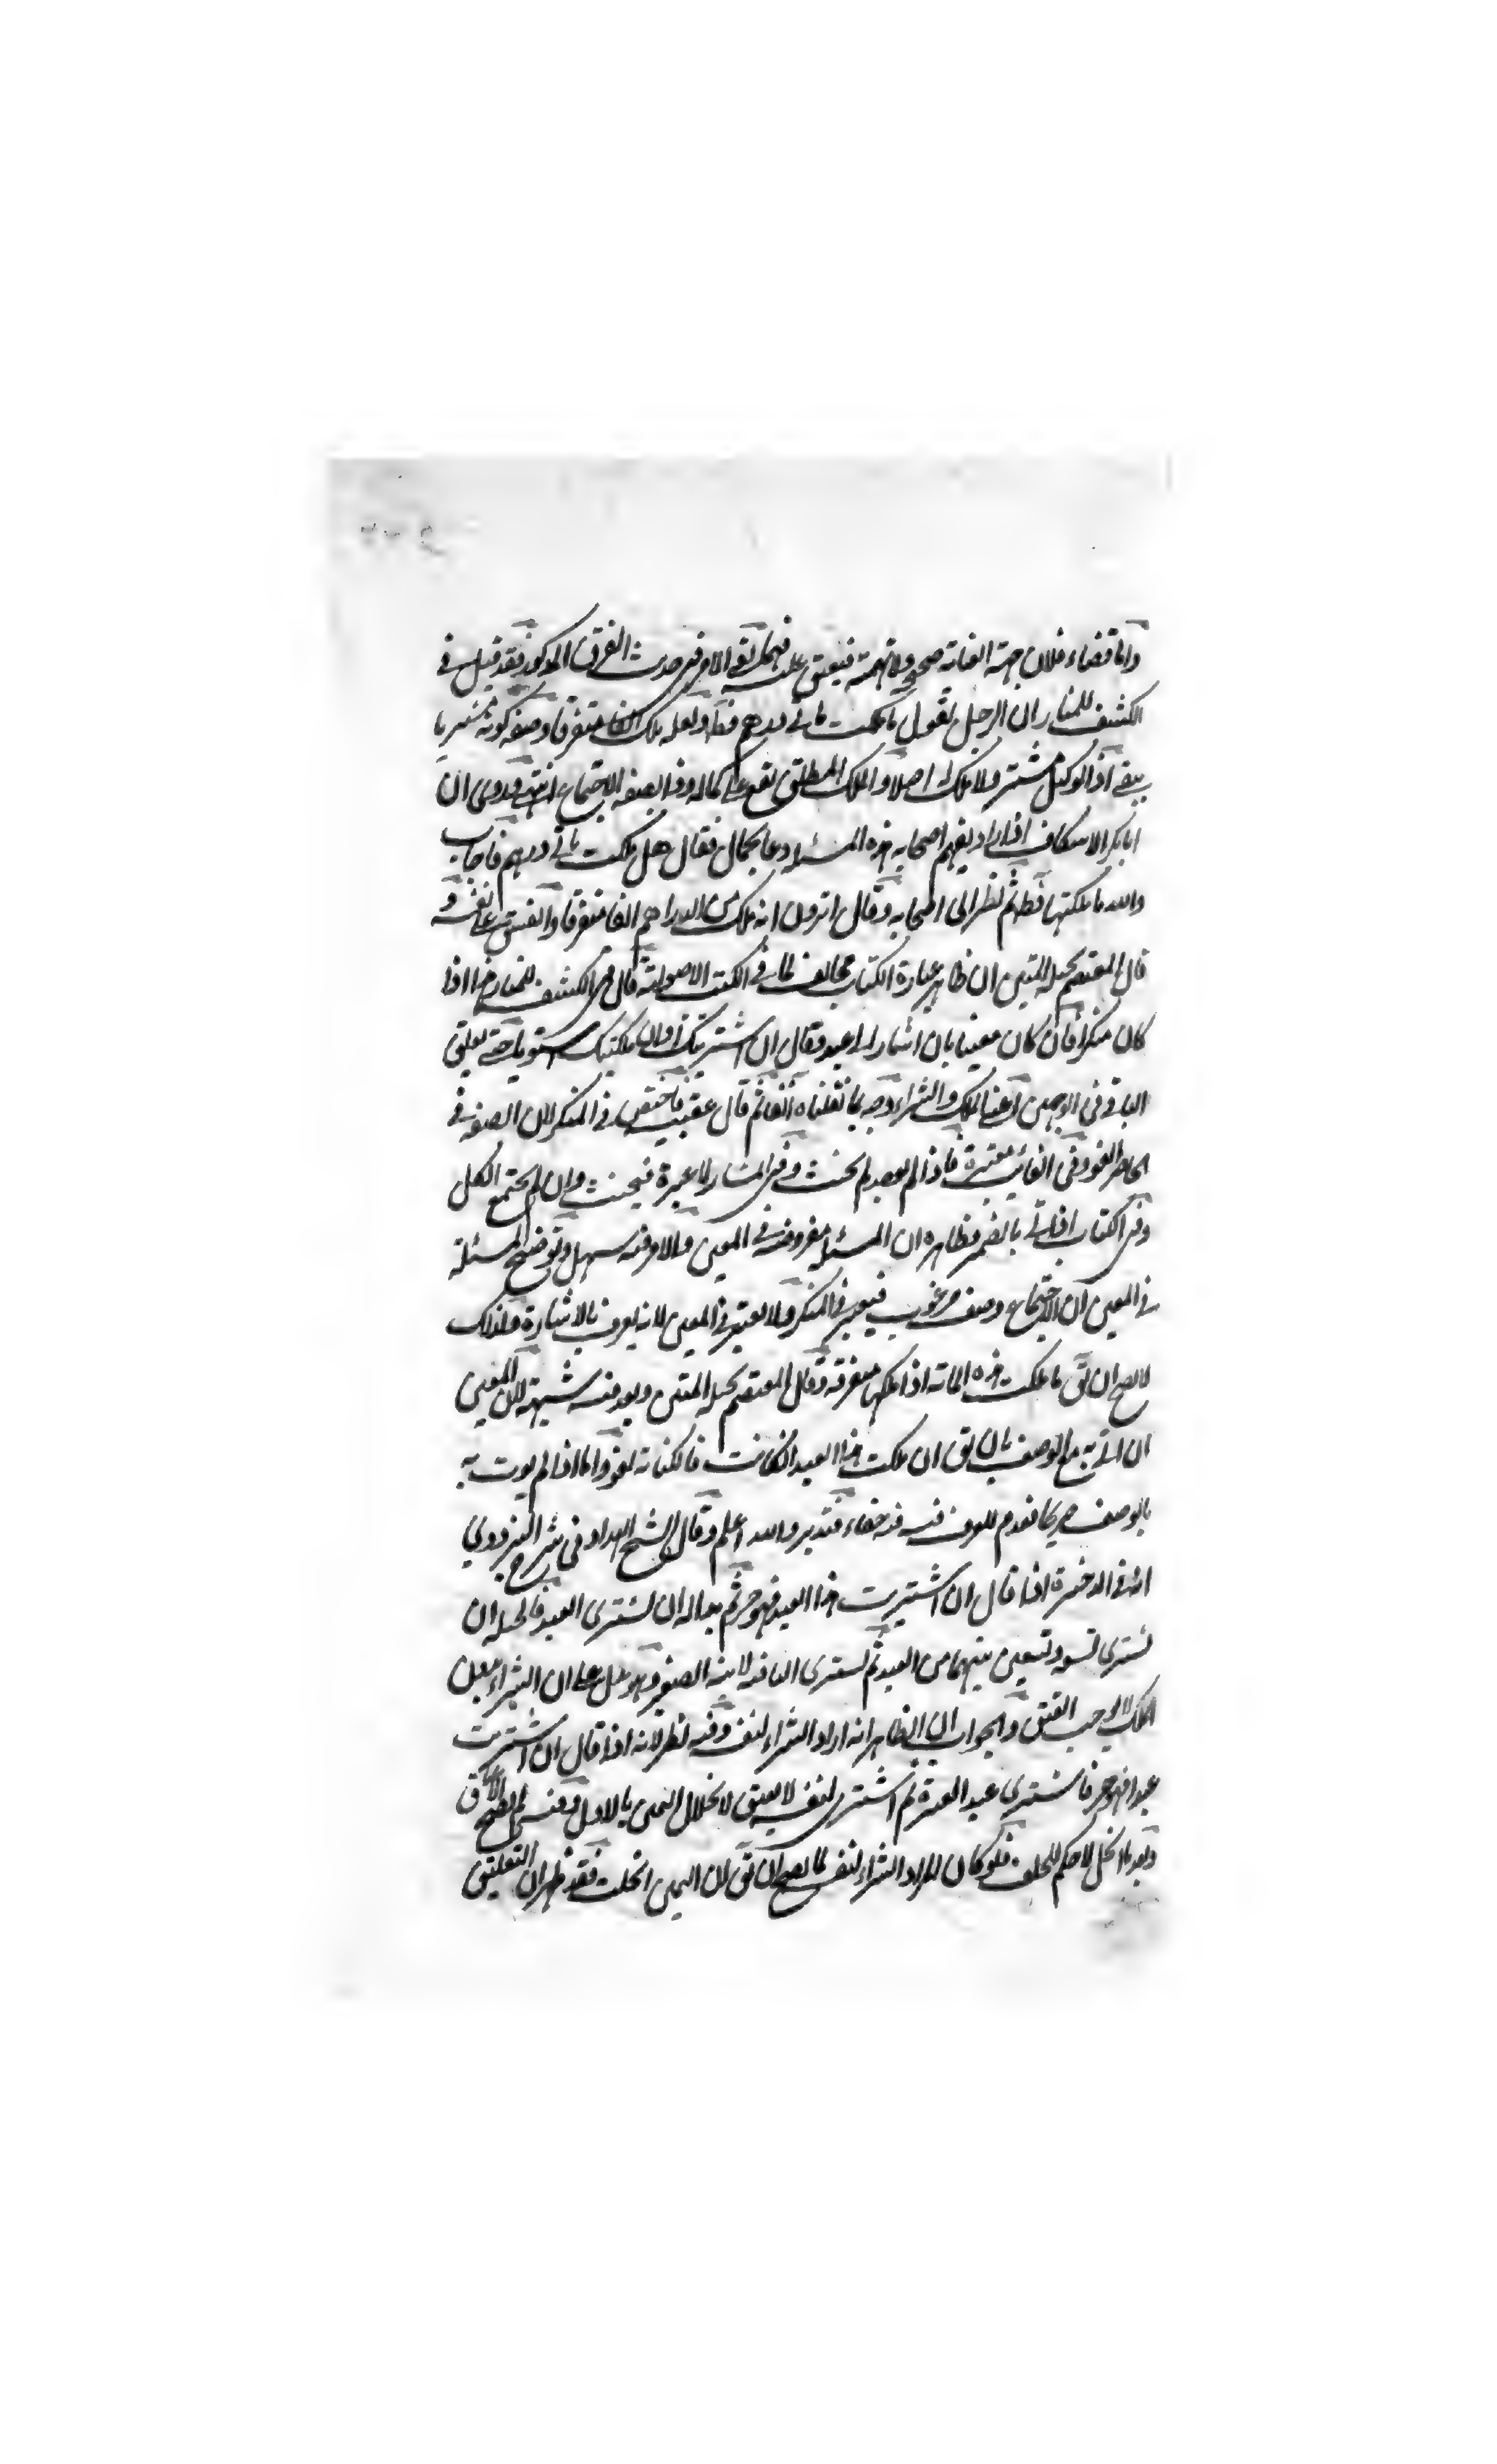 واما قضاء فلان جهة الغاية صحيح ولا تهمة فيعتق عليه الفرق المذكور فقد قيل في
الكشف للمنار ان الرجل يقول ما ملكت مائتي درهم قط ولعله ملك الفا متفرقا وصفه كونه مشتريا
يبقى اذ الوكيل مشتر ولا ملك له اصلا والملك المطلق يقع على كماله وذا بصفة الاجتماع انتهى وروى ان
ابا بكر الاسكاف اذا اراد تفهيم اصحابه هذه المسئلة دعا بحمال فقال هل ملكت مائتي درهم فاجاب
والله ما ملكتها قط ثم نظر الى اصحابه وقال اترون انه ملك من الدراهم الفا متفرقا وانفق على نفسه و
قال المعتصم بحبله المتين ان ظاهر عبارة الكتاب مخالف لما في الكتب الاصولية قال في الكشف للمنار هذا اذا
كان منكرا فان كان معينا بان اشار الى عبد وقال ان اشتريتك او ان ملكتك يستويان حتى يعتق
الباقي في الوجهين اعنى الملك والشراء وجه ما نقلناه آنفا ثم قال عقيبه فاختص في المنكر لان الصفة في
الحاضر لغو وفي الغائب معتبرة فاذا لم يوصد لم يحنث وفي المشار لا عبرة فيحنث وان لم يجتمع الكل
وفي الكتاب اذا اتى بالضمير فظاهره ان المسئلة مفروضة في المعين والامر فيه سهل وتوضيح المسئلة
في المعين ان الاجتماع وصف مرغوب فيعتبر في المنكر ولا يعتبر في المعين لانه يعرف بالاشارة ولذلك
لا يصح ان يق ما ملكت هذه المائة اذا ملكها متفرقة وقال المعتصم بحبله المتين وبعد فيه شبهة لان المعين
ان اتى به مع الوصف بان يق ان ملكت هذا العبد الكاتب فالكتابة لغو واما اذا لم يوت به
بالوصف صريحا لعدم فيه خفاء فتدبر والله اعلم وقال الشيخ الهداد في شرح البزدوي
انه في الذخيرة اذا قال ان اشتريت هذا العبد فهو حر ثم بدا له ان يشترى العبد فالحيلة ان
يشترى تسعة وتسعين سهما من العبد ثم يشترى الباقي لابنه الصغير وهو يدل على ان الشراء بدون
الملك لا يوجب العتق والجواب ان الظاهر انه اراد الشراء لنفسه وفيه نظر لانه اذا قال ان اشتريت
عبدا فهو حر فاشترى عبدا لغيره ثم اشترى لنفسه لا يعتق لانحلال اليمين بالاول وفيه لم يصح الاعتاق
وبعد ما انحل لا حكم للحلف فلو كان المراد الشراء لنفسه لما يصح ان يق لان اليمين انحلت فقد ظهر ان التعليق